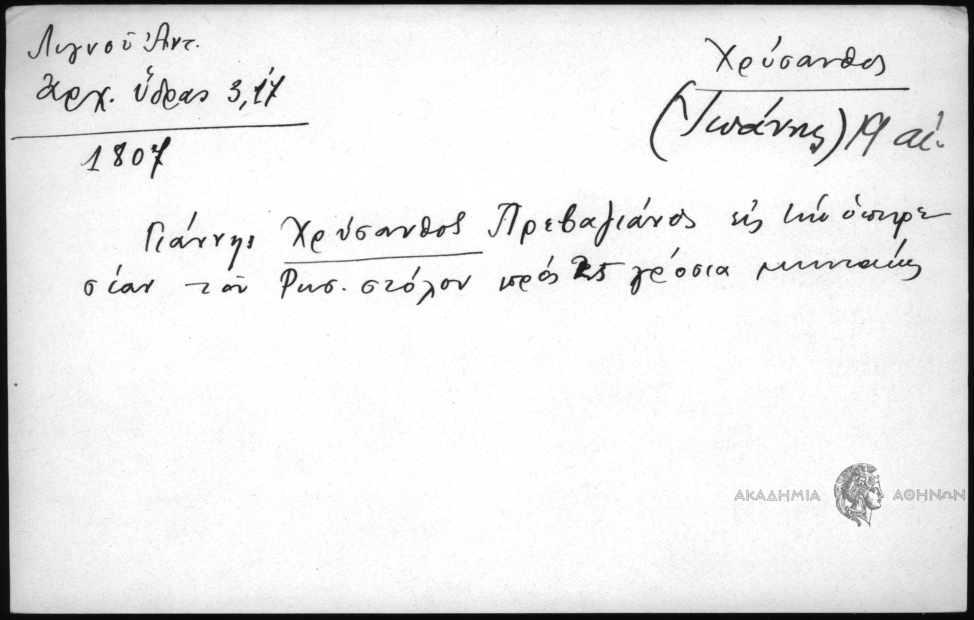 Λιγνοῦ Ἀντ.
Ἀρχ. Ὕδρας 3,17
1807
Χρύσανθος
(Ἰωάννης) 19 αἰ.
Γιάννης Χρύσανθος Πρεβαζιάνος εἰς τὴν ὑπηρε
σίαν τοῦ Ρωσ. στόλου πρός 25 γρόσια μηνιαίως
ΑΚΑΔΗΜΙΑ ΑΘΗΝΩΝ